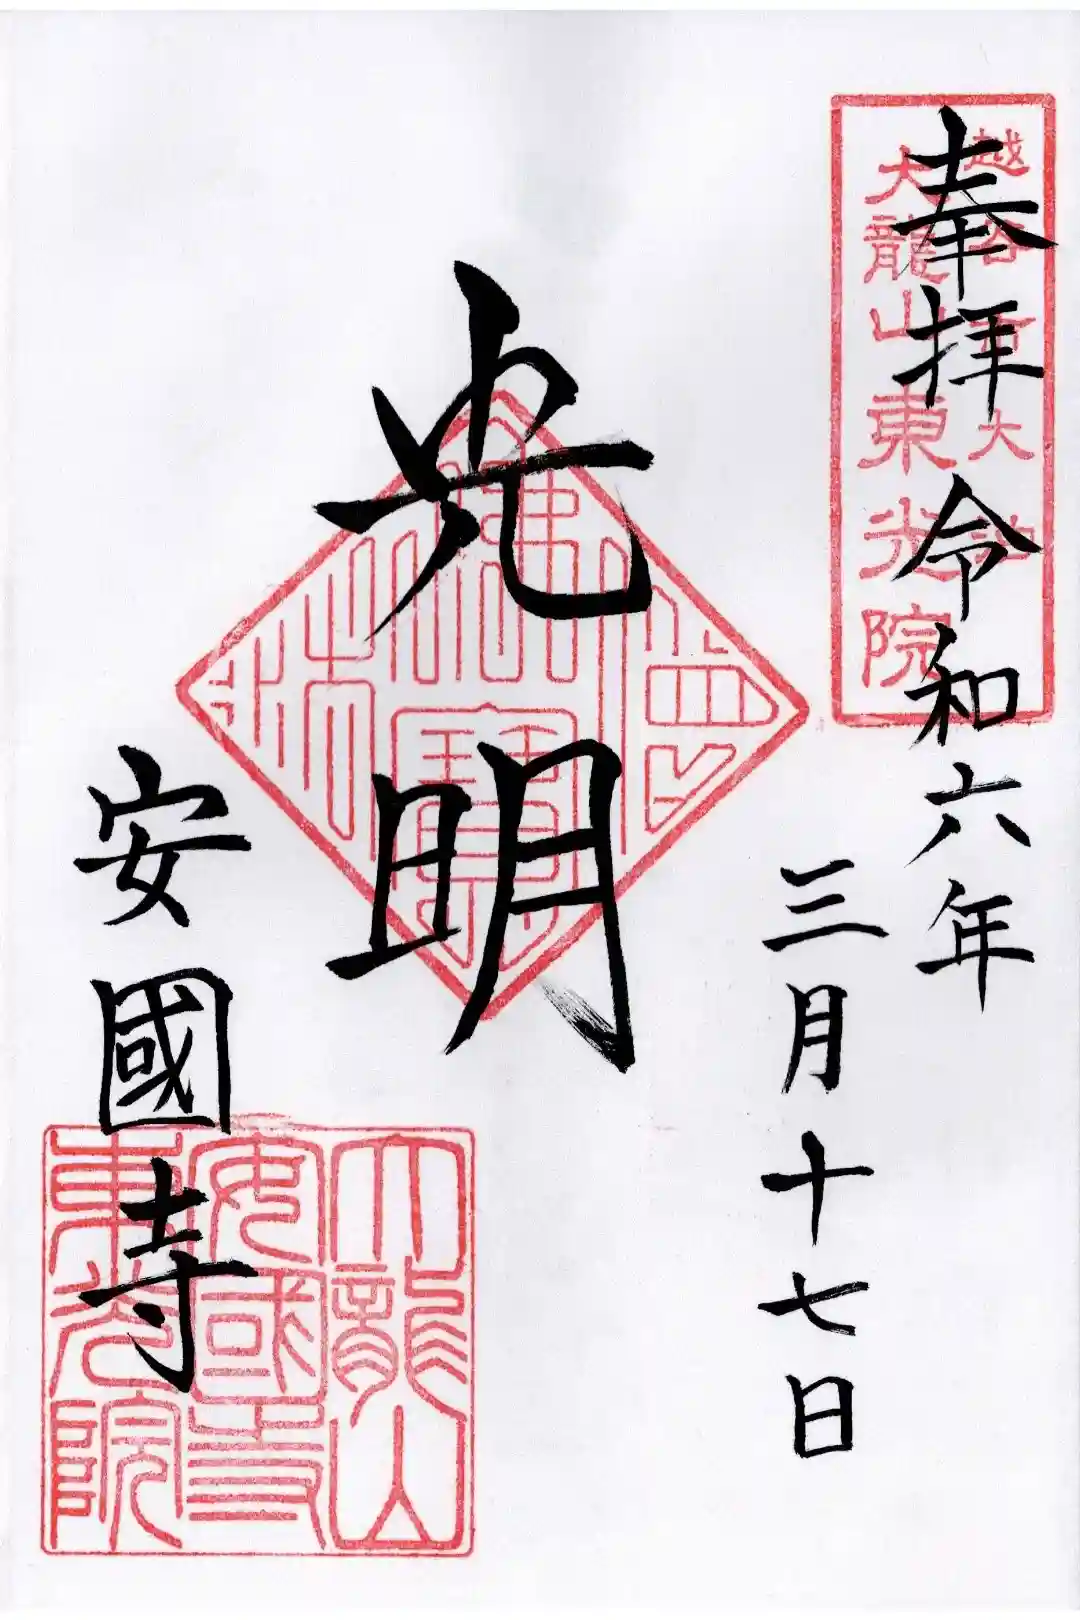 奉拝 令和六年
越谷市大泊
大龍山東光院
三月十七日
光明
安國寺
大龍山
安國寺
東光院